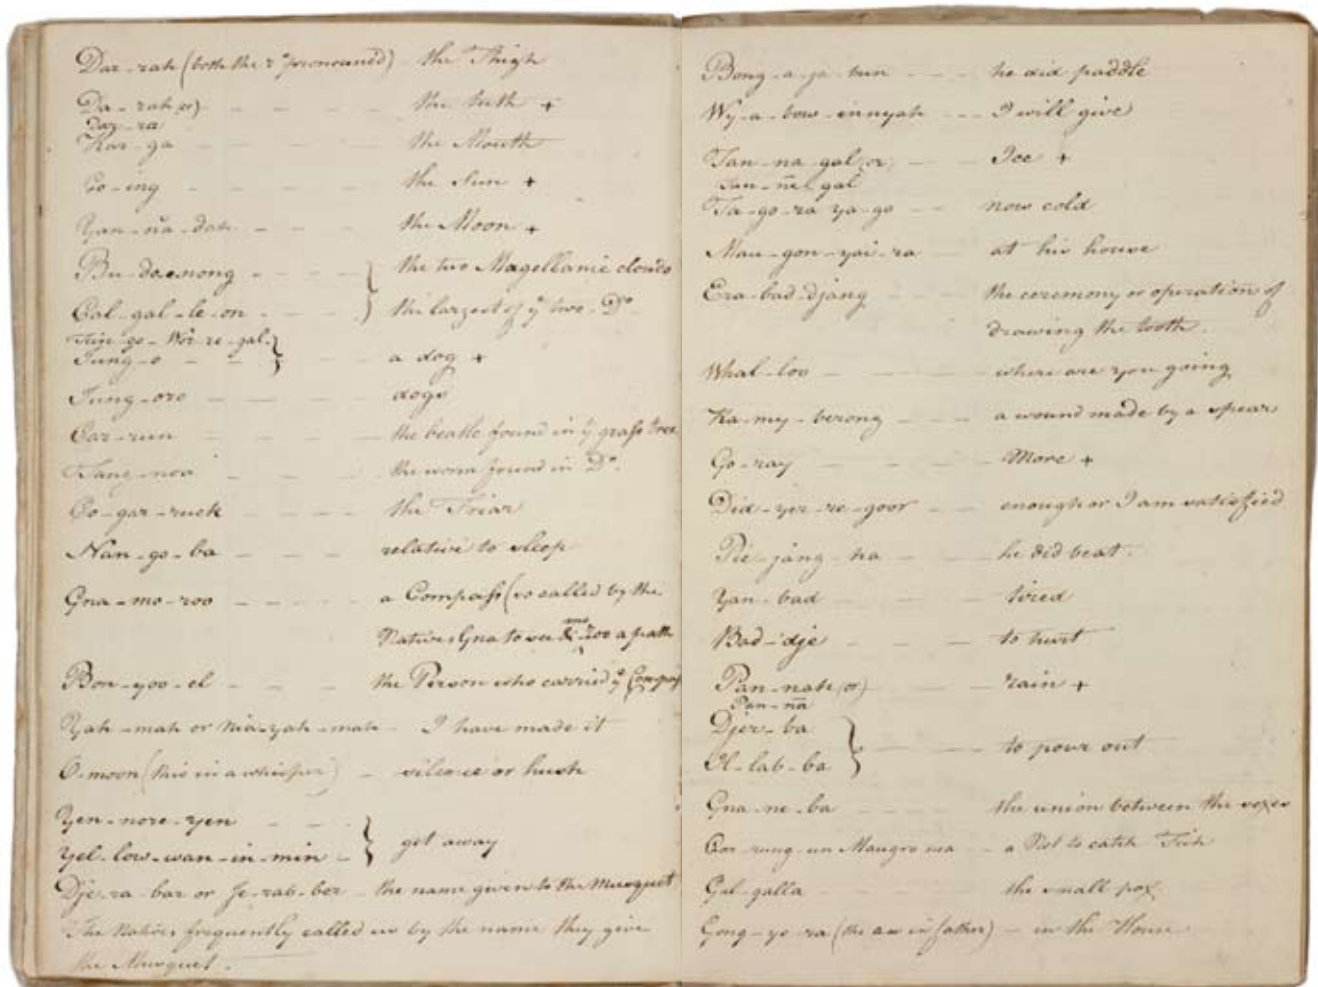 Dar-rah (both the r's pronounced) the Thigh
Da-rah (or) - - - - the teeth +
Dar-ra
Kar-ga - - - - the Mouth
Co-ing - - - - the Sun +
Yan-nă-dah - - - the Moon +
Bu-do-e-nong - - } the two Magellanic clouds
Cal-gal-le-on - - } the largest of ye two Do
Tein-go-Wor-re-gal }
Tung-o - - } a dog +
Tung-oro - - - dogs
Car-run - - - the beatle found in ye grass tree
- - - the worm found in Do.
Co-gar-ruck - - - the Friar
Nan-go-ba - - - relative to sleep
Gna-mo-roo - - - - a Compass (so called by the
Natives Gna to see & mo roo a path
Bon-yoo-el - - - the Person who carried ye Compass
Yah-mah or Nia-yah-mah - I have made it
O-moon (this in a whisper) - silence or hush
Yen-nore-yen - - - }
Yel-low-wan-in-min - } get away
Dje-ra-bar or Je-rab-ber - the name given to the Musquet
The Natives frequently called us by the name they give
the Musquet.
Bong-a-ja-bun - - - he did paddle
Wy-a-bow-innyah - - - I will give
Tan-na-gal (or) - - Ice +
Tan-ne-gal
Ta-go-ra ya-go - - now cold
Mau-gon-yai-ra at his house
Era-bad-djang - - the ceremony or operation of
drawing the tooth.
Whal-loo - - - - where are you going
Ka-my-berong - - - a wound made by a spear
Go-ray - - - - More +
Did-yer-re-goor - - enough or I am satisfied
Pie-jāng-ha - - he did beat.
Yan-bad - - - tired
Bad-dje - - - to hurt
Pan-nah (or) - - - rain +
Pan-nā
Djer-ba }
-lab-ba } - - - to pour out
Gna-ne-ba - - - the union between the sexes
Car-rung-un Maugro ma - a Net to catch Fish
Gal-galla - - - the small pox
Gong-ye-ra (the a as in father) - in the House